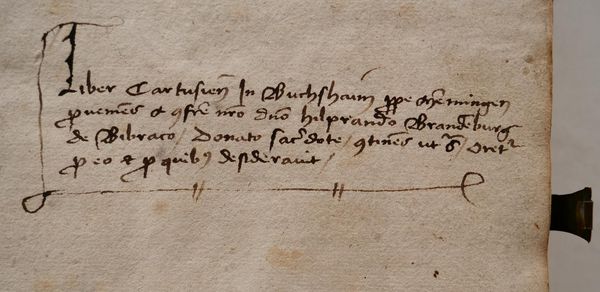 Liber Cartusien̄ In Buchshaim ꝓpe Mem̄ingen
ꝓueniēs a ꝯfr̄e nr̄o dn̄o hilprando Brandēburg
de Bibraco / Donato sacꝰdote / ꝯtinēs vt ſᷓ / Oretʳ
ꝓ eo et ꝓ quibꝫ desiderauit /